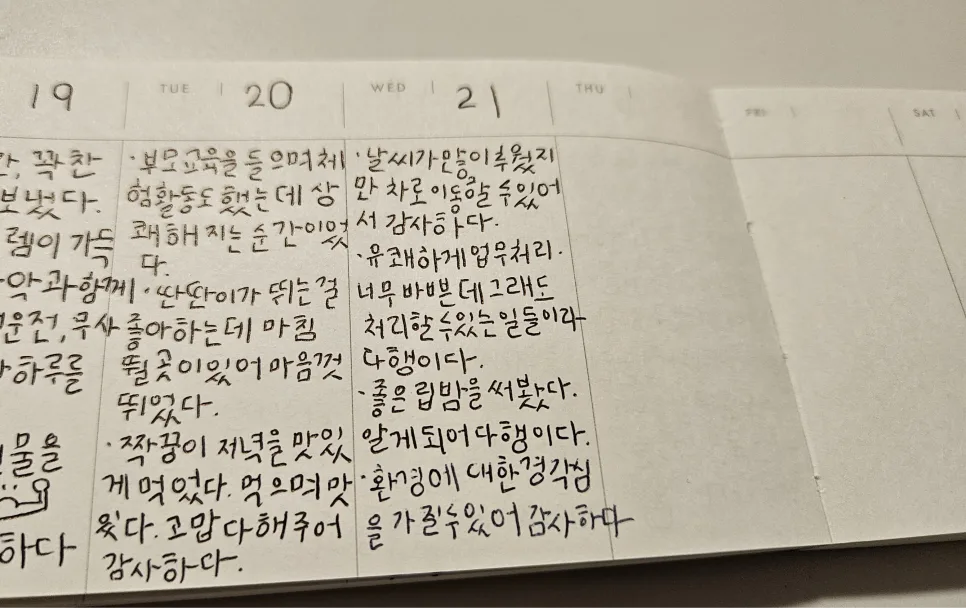 19
꽉 찬
보냈다.
렘이 가득
악과 함께
운전, 무사
하루를
물을
하다
TUE 20
· 부모교육을 들으며 체
험활동도 했는데 상
쾌해 지는 순간이었
다.
· 딴딴이가 뛰는 걸
좋아하는데 마침
뛸 곳이 있어 마음껏
뛰었다.
· 짝꿍이 저녁을 맛있
게 먹었다. 먹으며 맛
있다. 고맙다 해주어
감사하다.
WED 21
· 날씨가 많이 추웠지
만 차로 이동할 수 있어
서 감사하다.
· 유쾌하게 업무처리.
너무 바쁜데 그래도
처리할 수 있는 일들이라
다행이다.
· 좋은 립밤을 써봤다.
알게 되어 다행이다.
· 환경에 대한 경각심
을 가질 수 있어 감사하다
THU
FRI
SAT